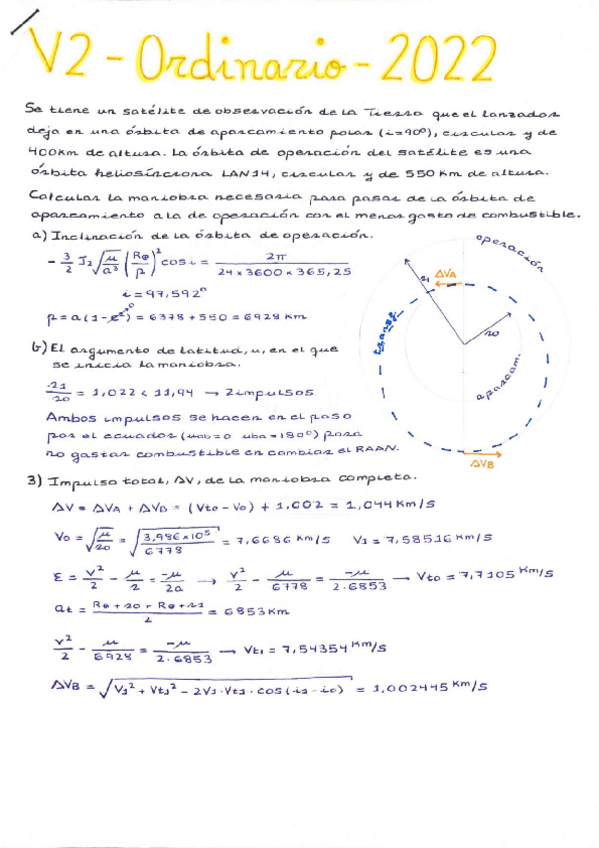 V2 - Ordinario - 2022
Se tiene un satélite de observación de la Tierra que el lanzador
deja en una órbita de aparcamiento polar (i=90º), circular y de
400km de altura. La órbita de operación del satélite es una
órbita heliosíncrona LAN14, circular y de 550 Km de altura.
Calcular la maniobra necesaria para pasar de la órbita de
aparcamiento a la de operación con el menor gasto de combustible.
a) Inclinación de la órbita de operación.
- 3/2 J2 √(μ/a³) (R⊕/p)² cos i = 2π / (24 x 3600 x 365,25)
i = 97,592º
p = a (1 - e²)⁰ = 6378 + 550 = 6928 Km
operación
ΔVA
r1
r0
transf.
aparcam.
ΔVB
b) El argumento de latitud, u, en el que
se inicia la maniobra.
r1/r0 = 1,022 < 11,94 → 2 impulsos
Ambos impulsos se hacen en el paso
por el ecuador (uab=0 uba=180º) para
no gastar combustible en cambiar el RAAN.
3) Impulso total, ΔV, de la maniobra completa.
ΔV = ΔVA + ΔVB = (Vt0 - V0) + 1,002 = 1,044 Km/s
V0 = √(μ/r0) = √(3,986x10⁵/6778) = 7,6686 Km/s V1 = 7,58516 Km/s
ε = v²/2 - μ/r = -μ/2a → v²/2 - μ/6778 = -μ/2·6853 → Vt0 = 7,7105 Km/s
at = (R⊕ + r0 + R⊕ + r1)/2 = 6853 Km
v²/2 - μ/6928 = -μ/2·6853 → Vt1 = 7,54354 Km/s
ΔVB = √(V1² + Vt1² - 2V1·Vt1·cos(i1-i0)) = 1,002445 Km/s